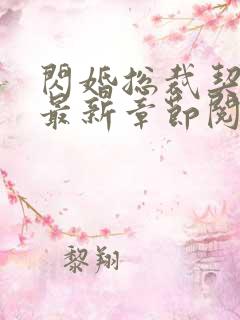 閃婚总裁契
最新章節閱
黎翔